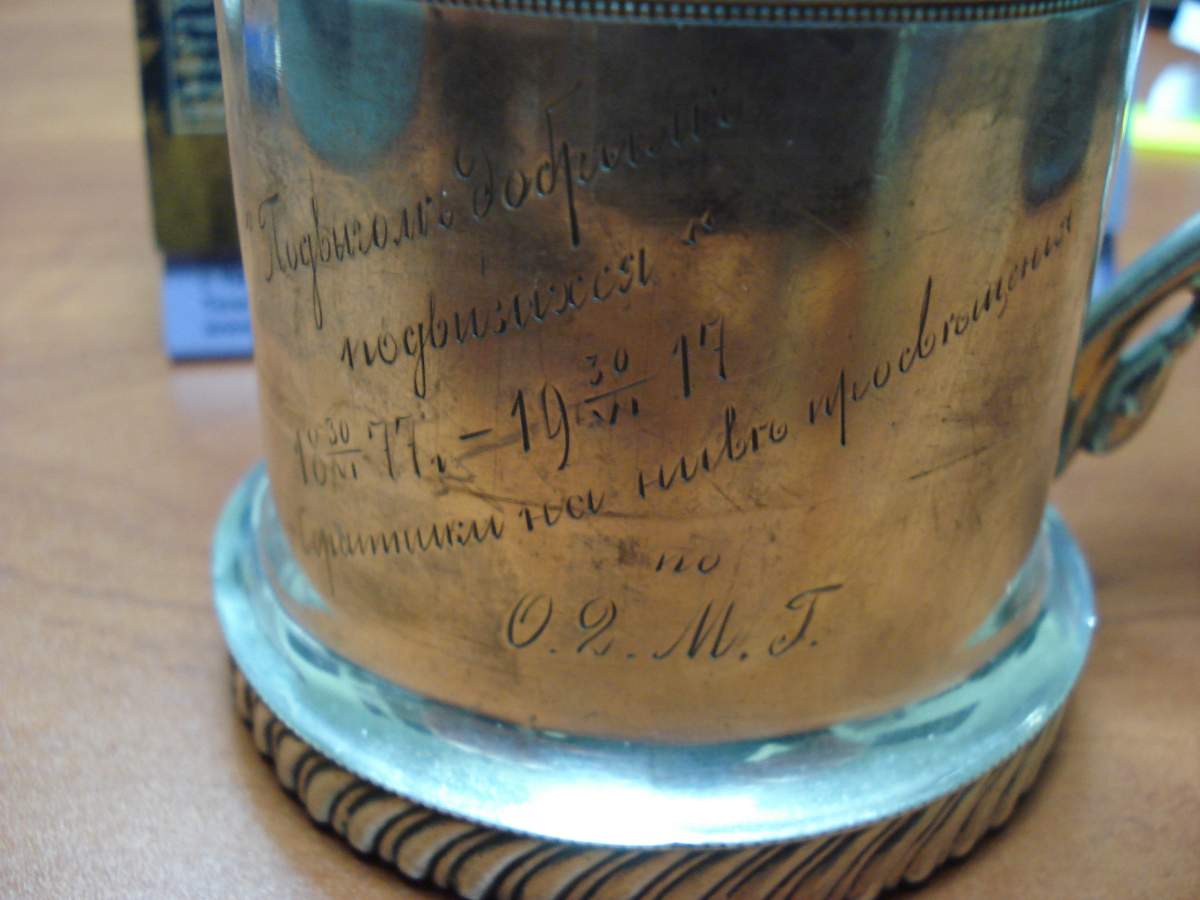 "Подвигомъ добрымъ
подвизихся"
18 30/XI 77 г. – 19 30/VI 17
Соратники на нивѣ просвѣщенія
по
О.Д.М.Г.